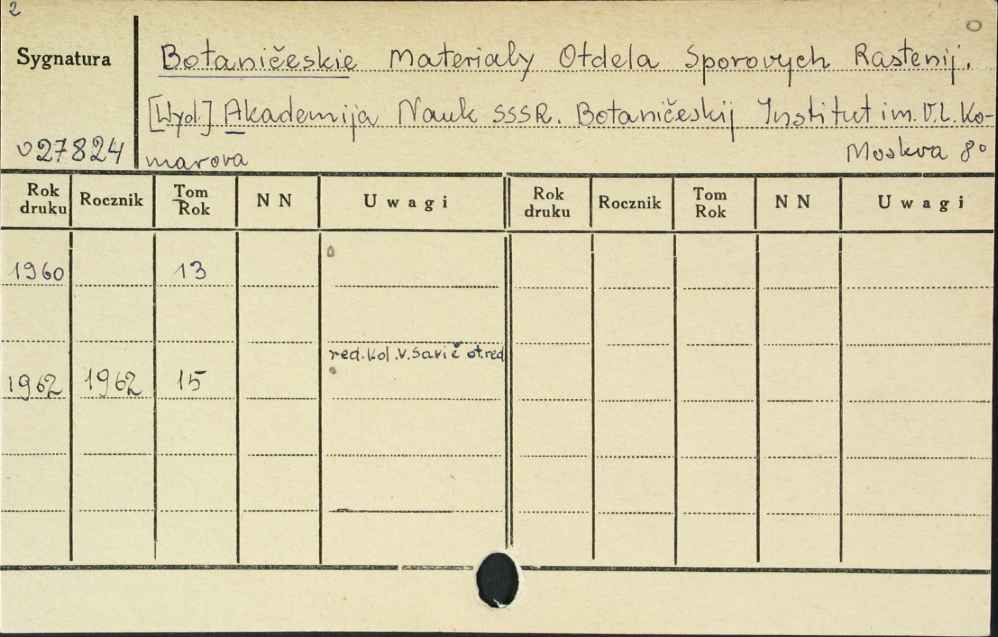 2
Sygnatura
Botaničeskie Materialy Otdela Sporovych Rastenij.
[Wyd.] Akademija Nauk SSSR. Botaničeskij Institut im. V.L. Ko-
027824 marova Moskva 8°
Rok druku Rocznik Tom Rok NN Uwagi Rok druku Rocznik Tom Rok NN Uwagi
1960 13
red. kol. V. Savič ot. red
1962 1962 15